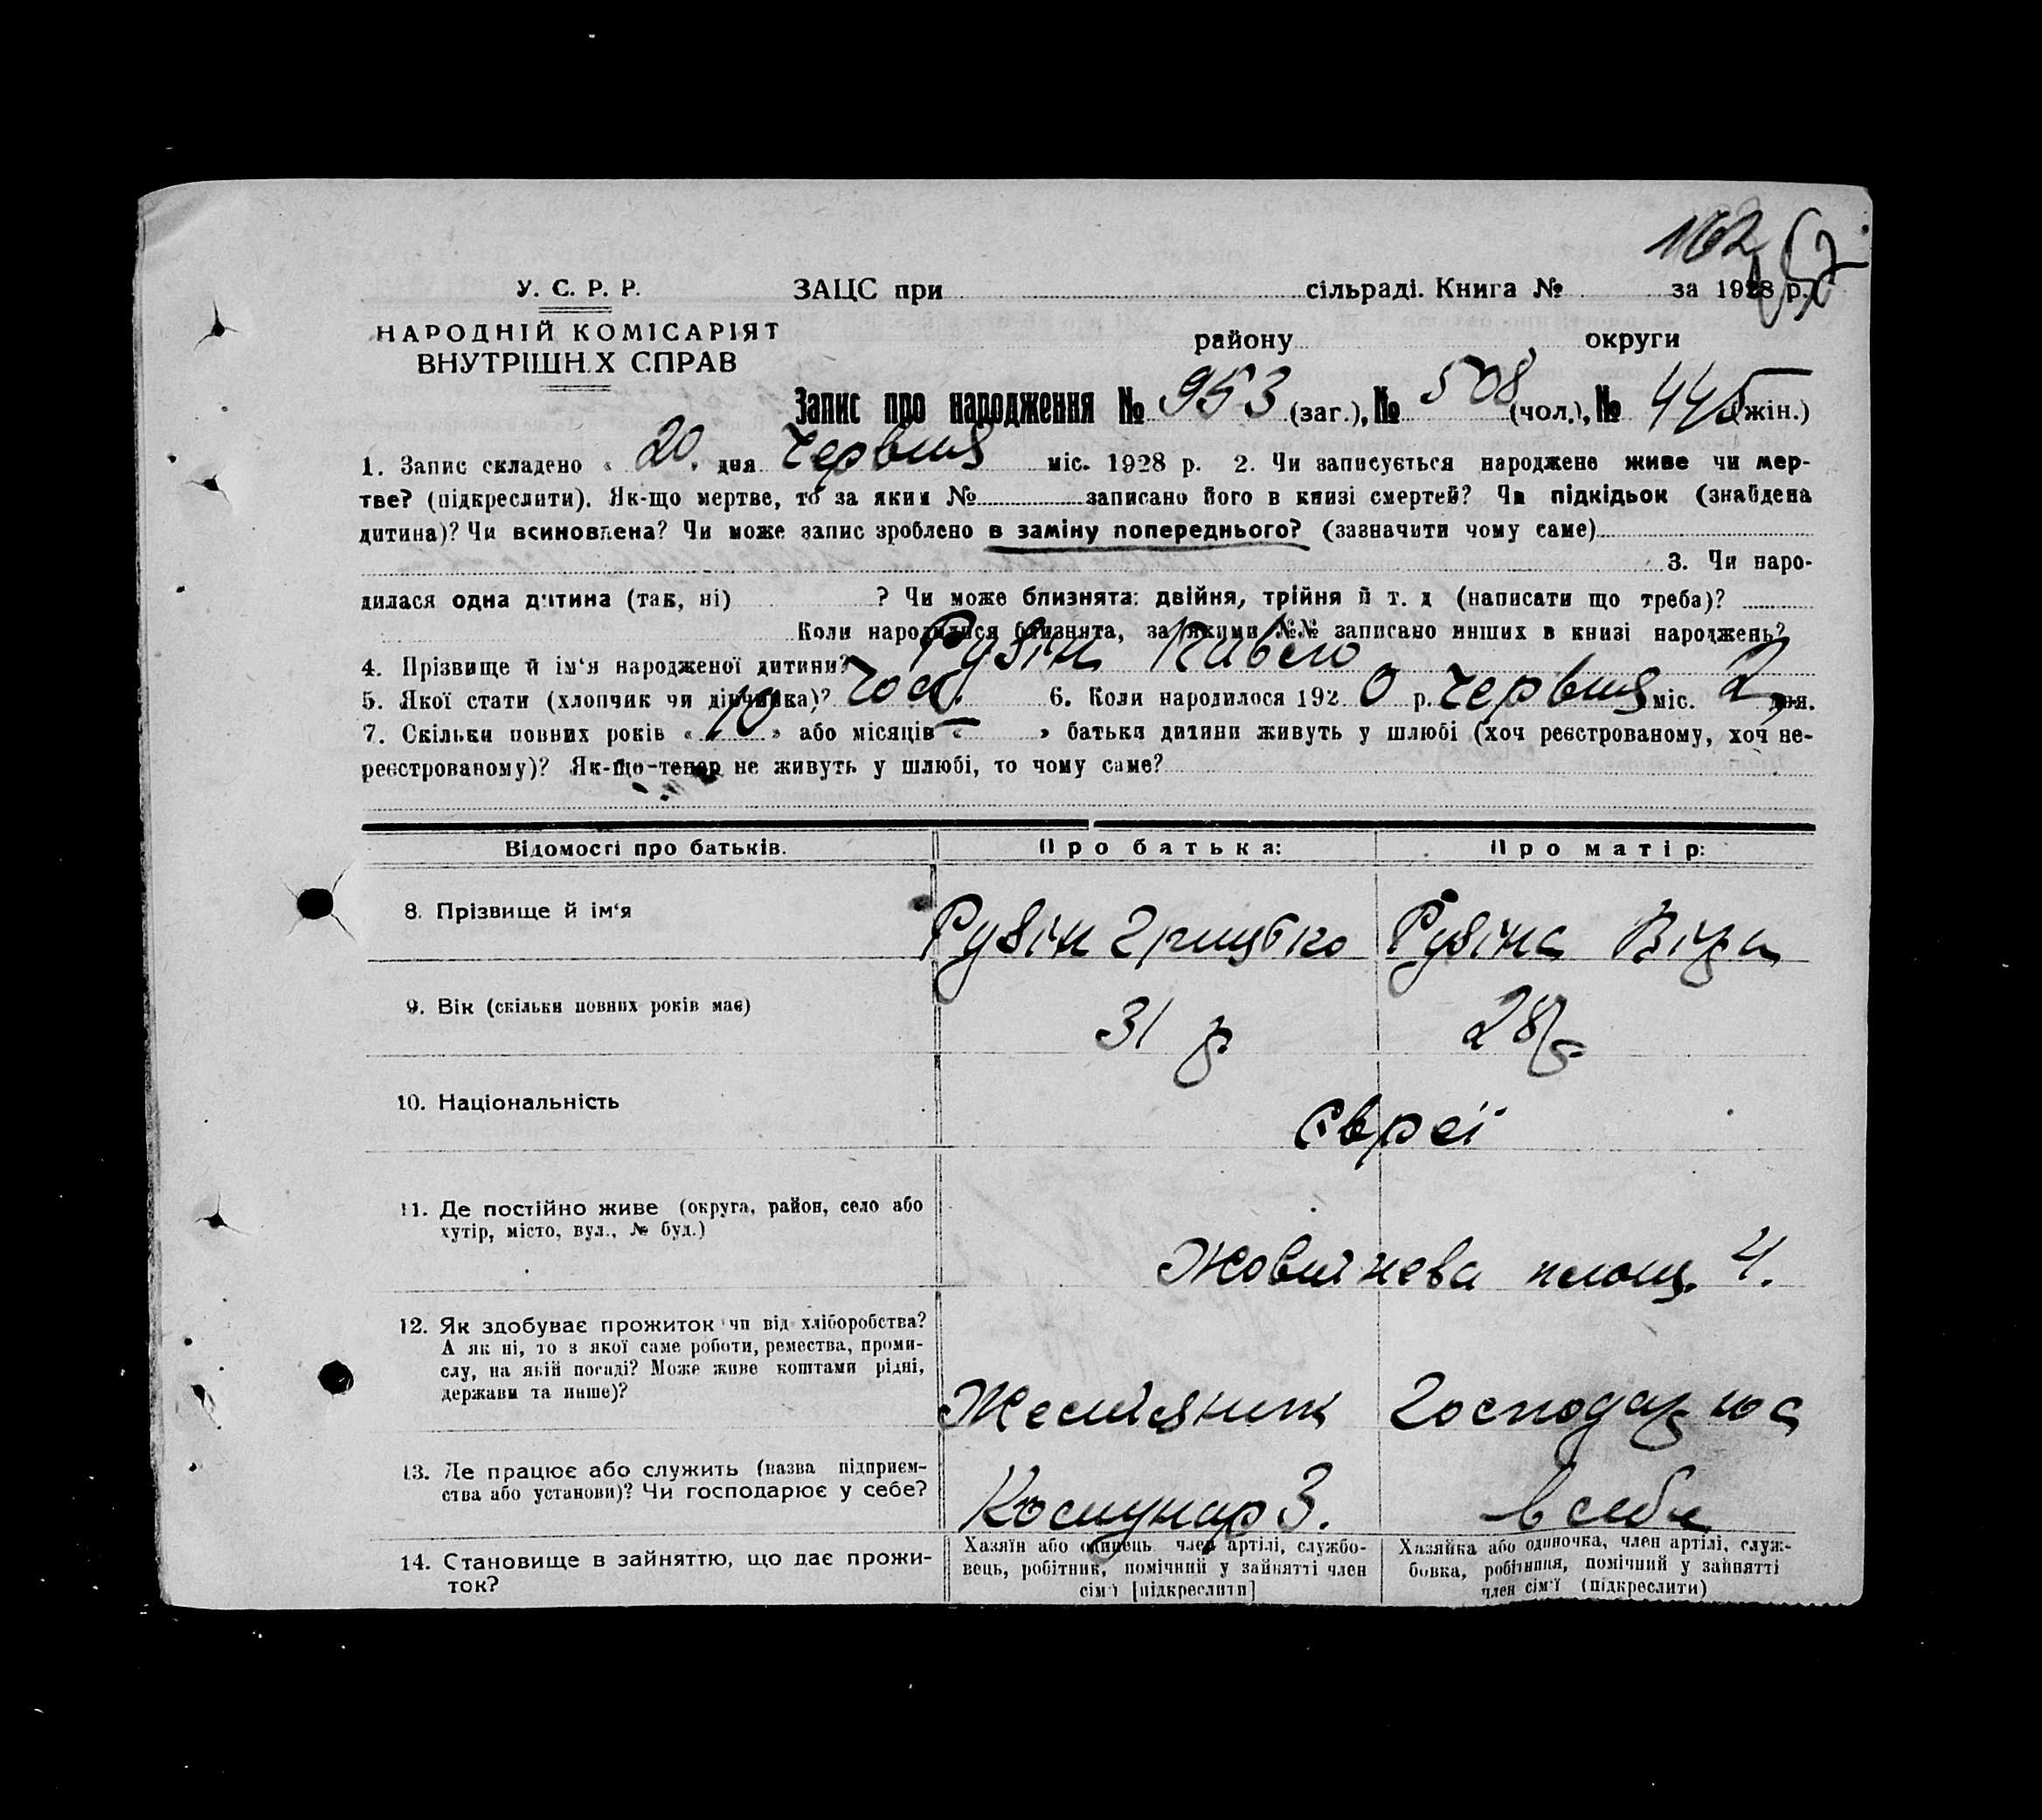 162
У. С. Р. Р.
ЗАЦС при сільраді. Книга № за 1928 р.
НАРОДНІЙ КОМІСАРІЯТ
ВНУТРІШНІХ СПРАВ
району округи
Запис про народження № 953 (заг.), № 508 (чол.), № 445 (жін.)
1. Запис складено « 20 » дня червня міс. 1928 р. 2. Чи записується народжене живе чи мер-
тве? (підкреслити). Як-що мертве, то за яким № записано його в книзі смертей? Чи підкідьок (знайдена
дитина)? Чи всиновлена? Чи може запис зроблено в заміну попереднього? (зазначити чому саме)
3. Чи наро-
дилася одна дитина (так, ні) ? Чи може близнята: двійня, трійня й т. д (написати що треба)?
Коли народилися близнята, за якими №№ записано инших в книзі народжень?
4. Прізвище й ім'я народженої дитини? Рубін
5. Якої стати (хлопчик чи дівчинка)? чол. 6. Коли народилося 1920 р. червня міс. 2 дня.
7. Скільки повних років « 10 » або місяців « — » батьки дитини живуть у шлюбі (хоч реєстрованому, хоч не-
реєстрованому)? Як-що тепер не живуть у шлюбі, то чому саме?
Відомості про батьків. Про батька: Про матір:
8. Прізвище й ім'я Рубін Грицько Рубіна
9. Вік (скільки повних років має) 31 р 28 р
10. Національність євреї
11. Де постійно живе (округа, район, село або
хутір, місто, вул., № буд.)
Жовтнева площ. 4.
12. Як здобуває прожиток чи від хліборобства?
А як ні, то з якої саме роботи, ремества, проми-
слу, на якій посаді? Може живе коштами рідні,
держави та инше)?
Жестяник Господарює
13. Де працює або служить (назва підприєм-
ства або установи)? Чи господарює у себе?
Комунар 3. в себе
14. Становище в зайняттю, що дає прожи-
ток?
Хазяїн або одинець член артілі, службо-
вець, робітник, помічний у зайнятті член
сім'ї [підкреслити]
Хазяйка або одиночка, член артілі, служ-
бовка, робітниця, помічний у зайнятті
член сім'ї (підкреслити)